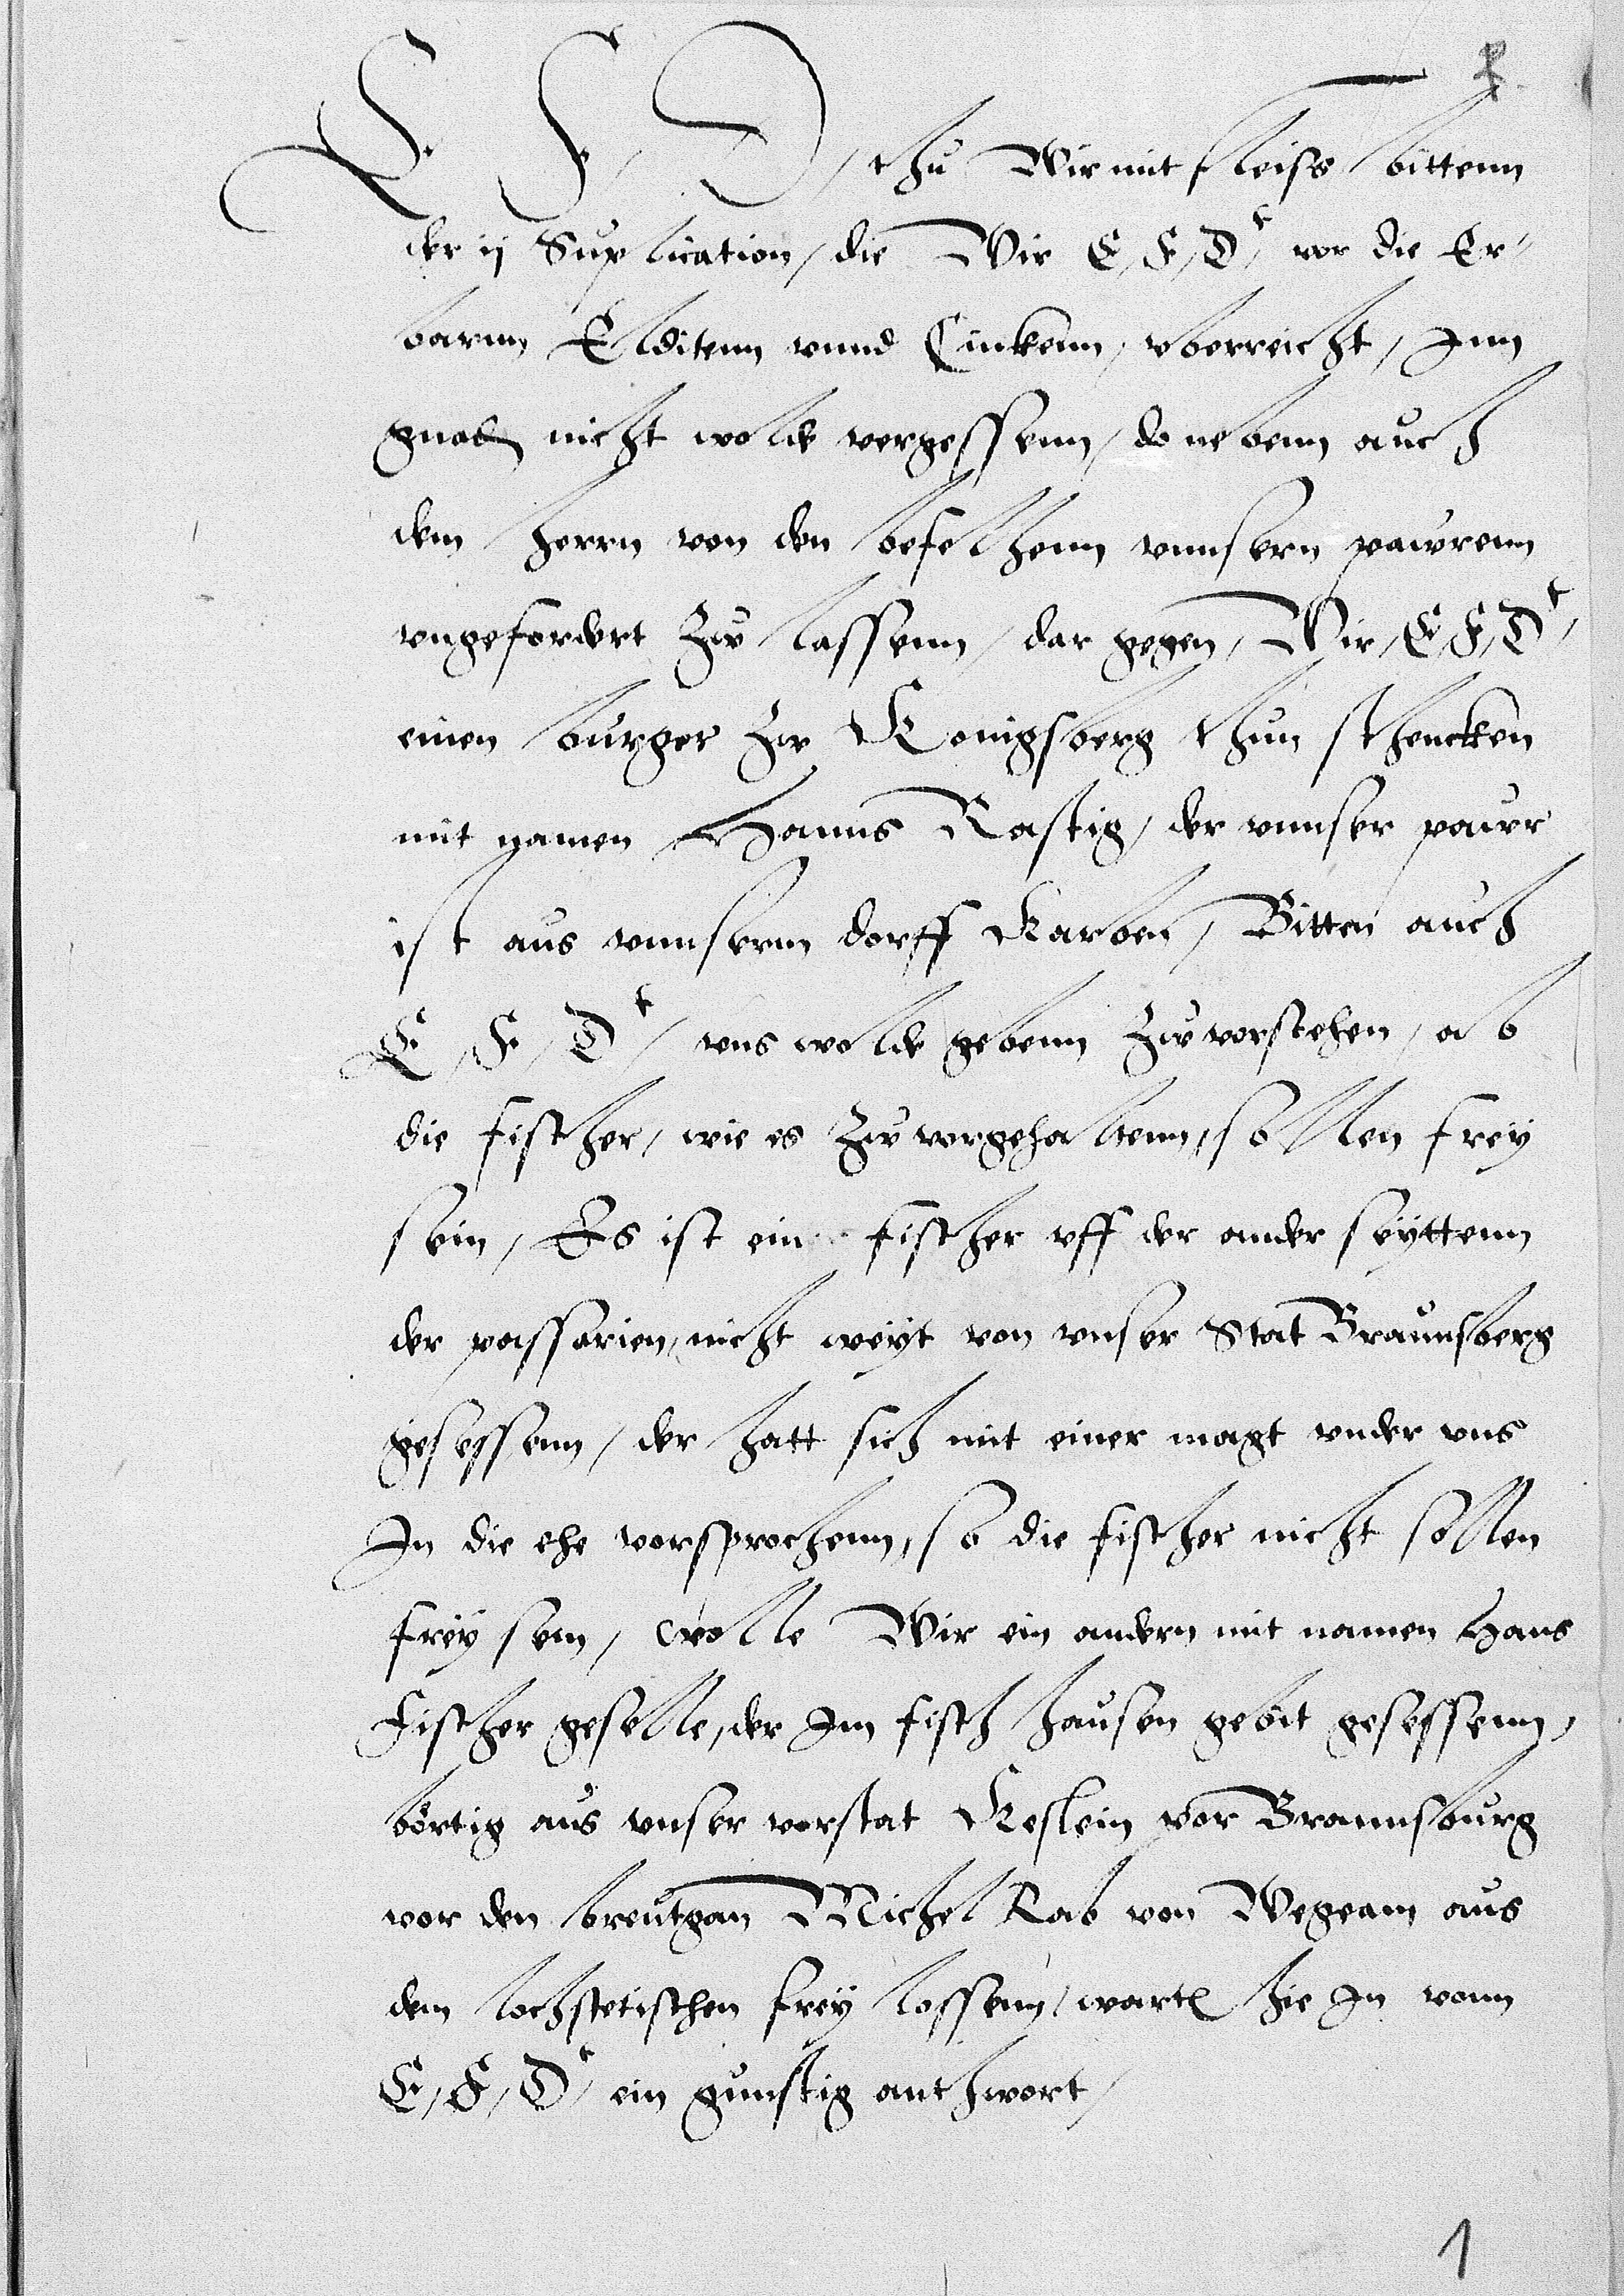 E. F. D, thu Wir mit fleiss bittenn
der ij Suplication, die Wir E, F, Dt, vor die Er,
barnn Elditenn vnnd Cinkenn, vberreicht, Inn
gnaden nicht wolde vergessenn, do nebenn auch
dem herrn von den befelhenn vnnsern pawrenn
vngefordert zw lassenn, dar gegen, Wir, E, F, Dt,
einen burger zw Konigsberg thun schencken
mit namen Hanns Rastig, der vnnser pawr
ist aus vnnserm dorff Karben, Bitten auch
E, F, Dt, vns wolde gebenn zwvorstehen, ab
die fischer, wie es zwvorgehaltenn, sollen frey
sein, Es ist ein fischer vff der ander seyttenn
der passarien, nicht weyt von vnser Stat Braunsberg
gesessenn, der hatt sich mit einer magt vnder vns
In die ehe vorsprochenn, so die fischer nicht sollen
frey sein, wolle Wir ein andern mit namen Hans
Fischer geselle, der Im fischhausen gebit gesessenn,
börtig aus vnser vorstat Keslein por Braunsburg
vor den breutgan Michel Rab von Wegeam aus
dem lochstetischen frey lossenn, warten hie In vonn
E, F, Dt, ein gunstig anthwort,
1